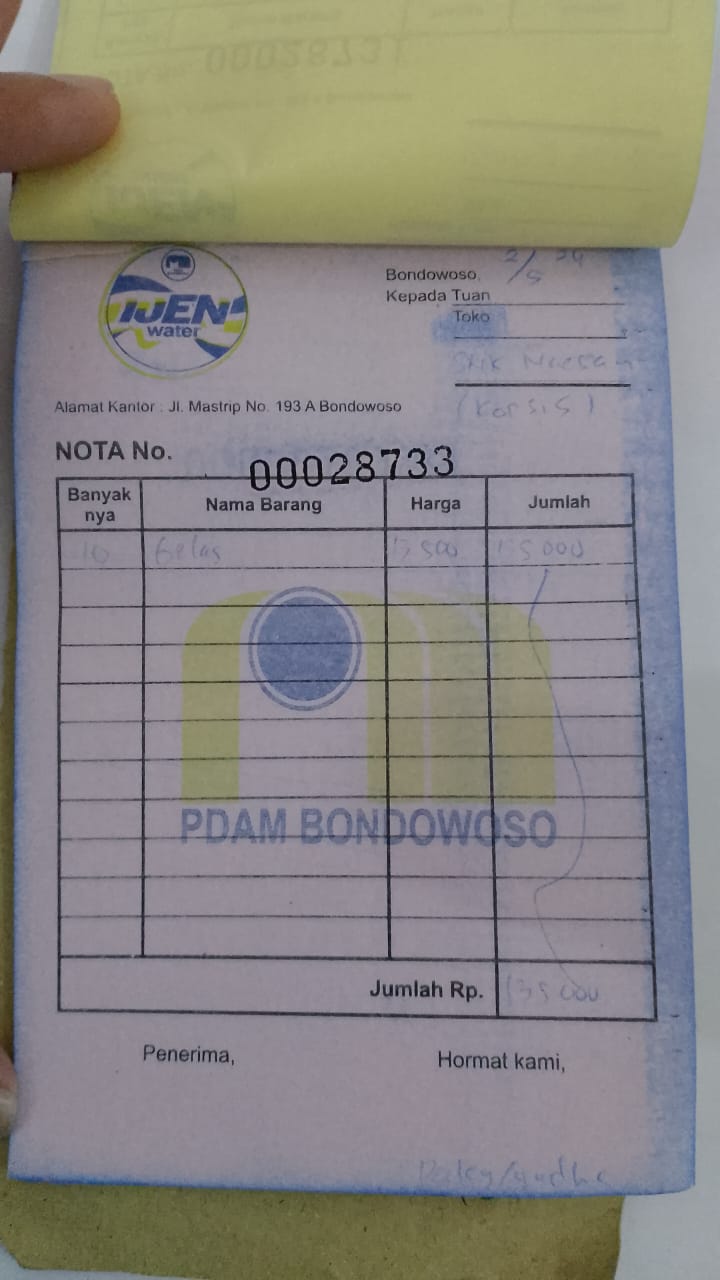 00028731
IJEN
water
Bondowoso, 2/5 24
Kepada Tuan
Toko
(Korsis)
Alamat Kantor : Jl. Mastrip No. 193 A Bondowoso
NOTA No. 00028733
Banyak nya Nama Barang Harga Jumlah
10 Gelas 13 500 135 000
PDAM BONDOWOSO
Jumlah Rp. 135 000
Penerima, Hormat kami,